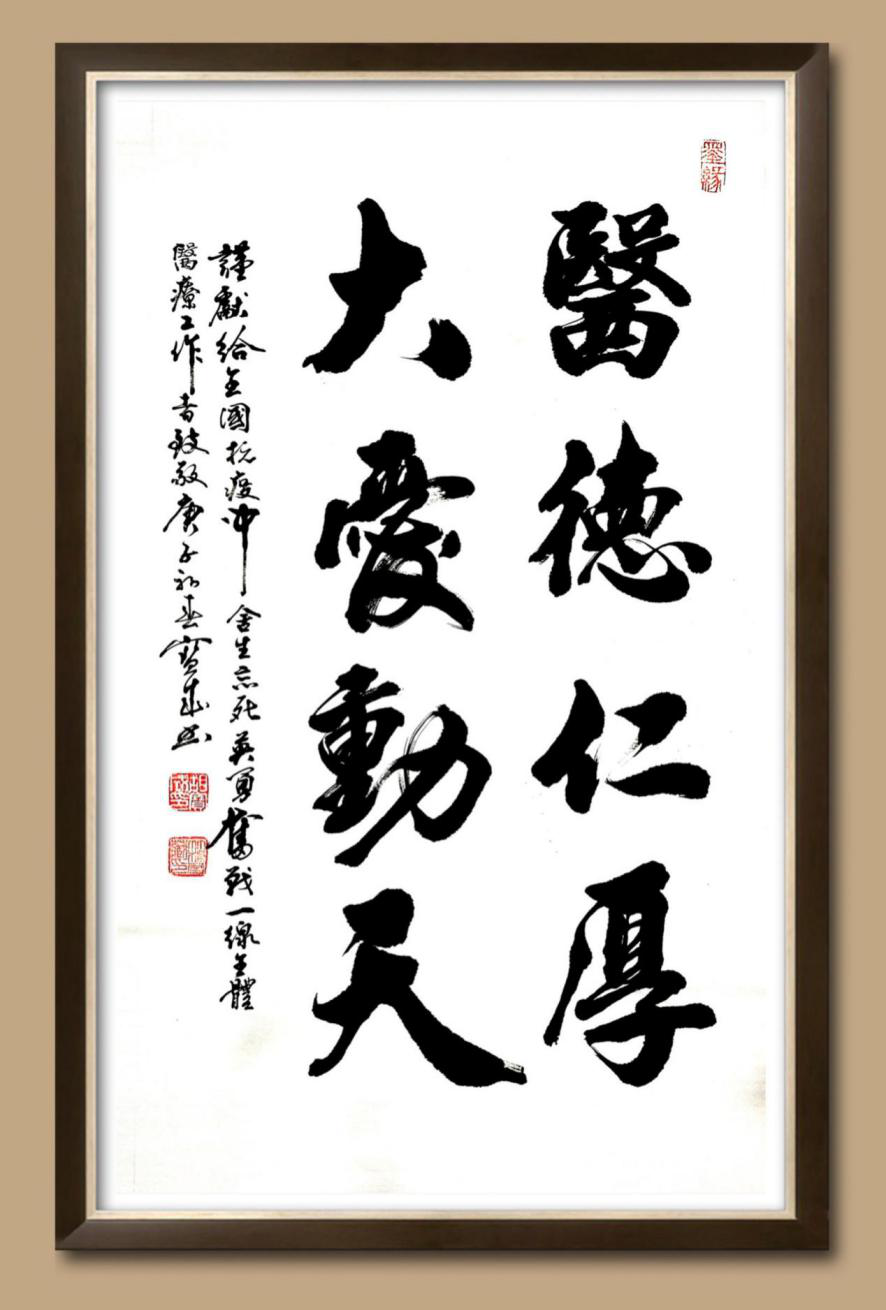 墨緣
醫德仁厚
大愛動天
謹獻給全國抗疫冲舍生忘死英勇奮戰一線全體
醫療工作者致敬庚子初春寶成书